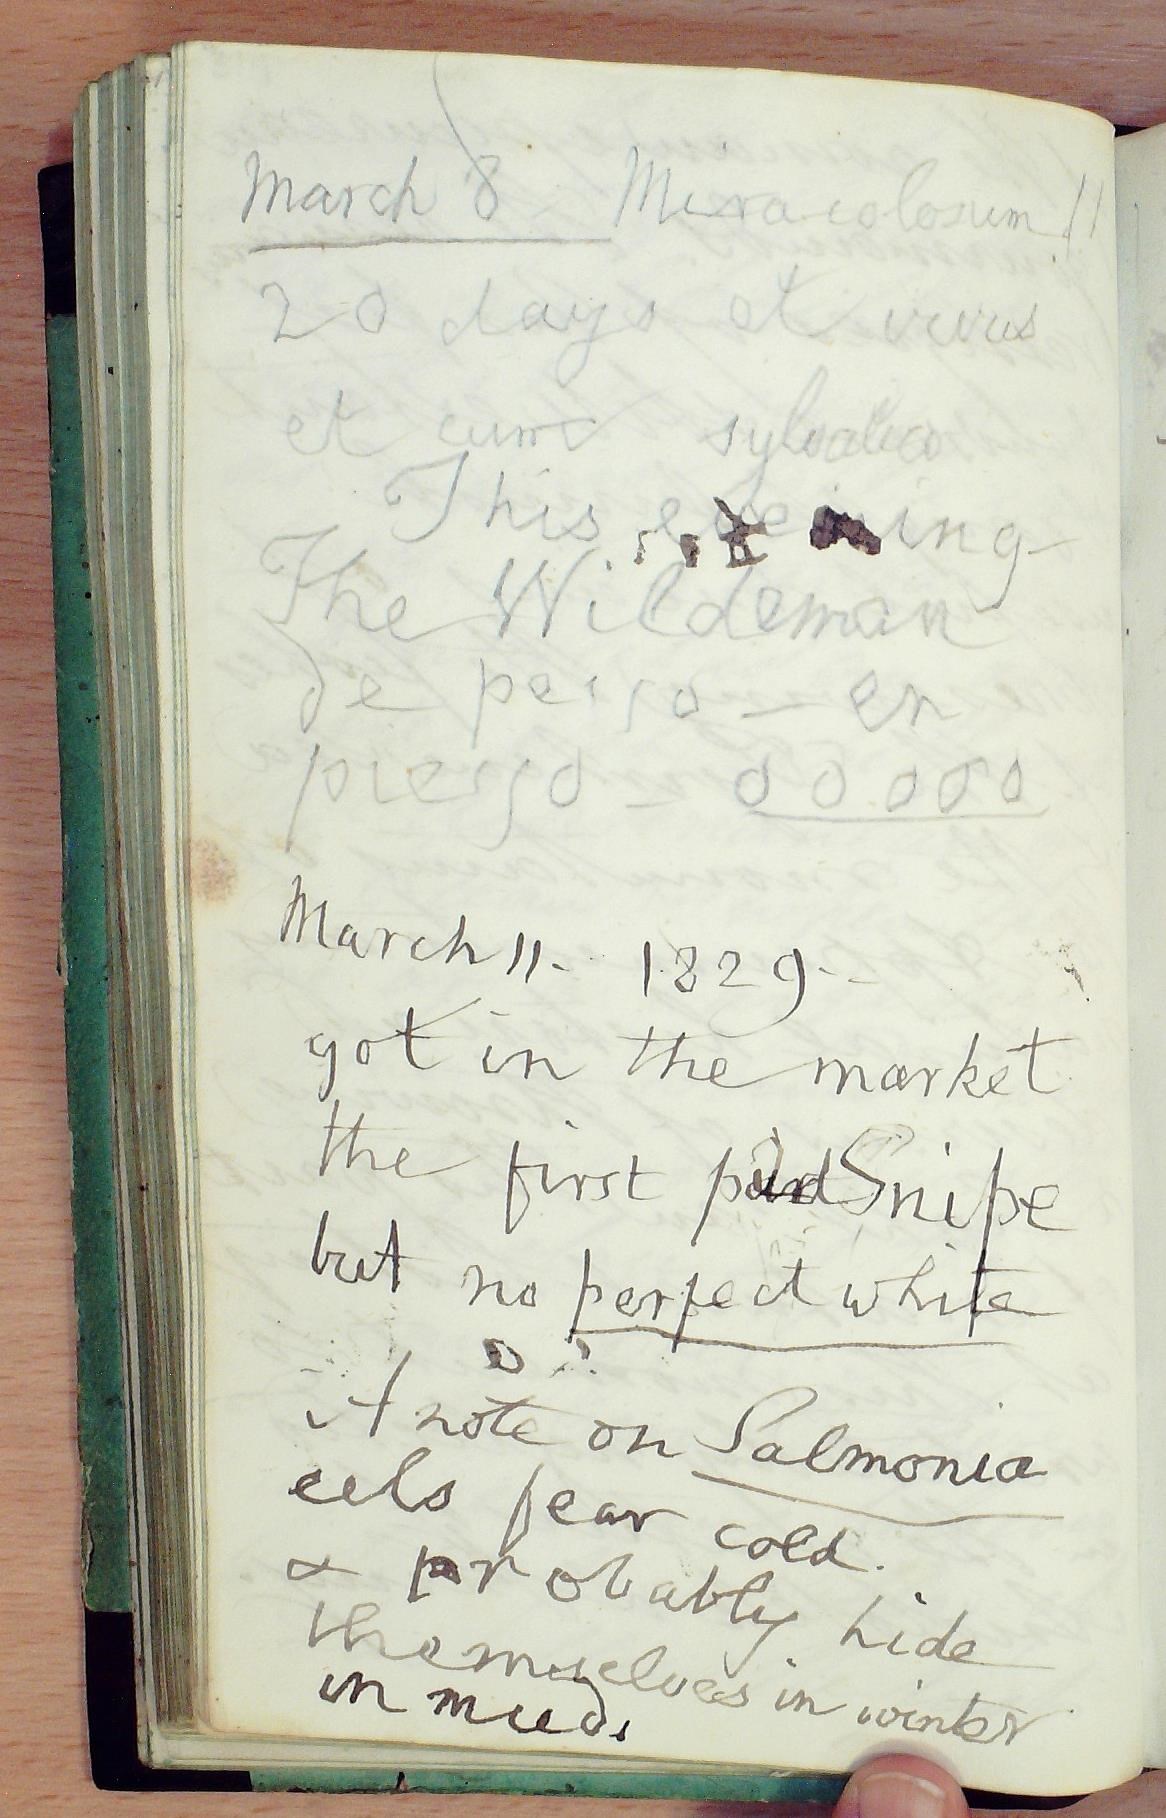 March 8 Miracolosum !!
20 days et vivus
et cum sylvatico
This evening
The Wildeman
de perso — en
pierso — 00000
March 11. 1829 -
got in the market
the first Snipe
but no perfect white
A note on Salmonia
eels fear cold.
& probably hide
themselves in winter
in mud.